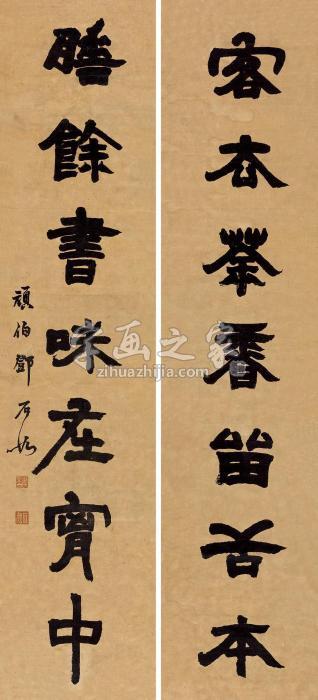 客去茶香留舌本
睡餘書味在胷中
頑伯鄧石如
字画之家
zihuazhijia.com